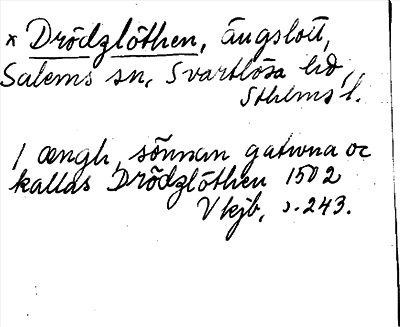 × Drödzlöthen, ängslott,
Salems sn, Svartlösa hd,
Sthlms l.
1 ængh, sönnan gatwna oc
kallas Drödzlöthen 1502
Vkjb, s. 243.